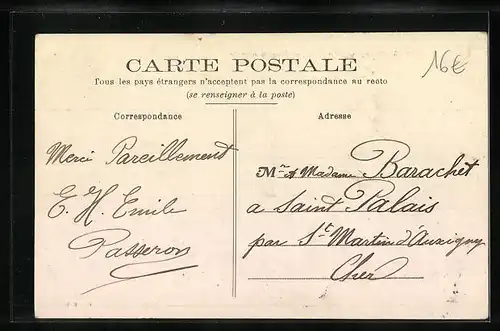 CARTE POSTALE
Tous les pays étrangers n'acceptent pas la correspondance au recto
(se renseigner à la poste)
16€
Correspondance
Merci Pareillement
E. H. Emile
Passeron
Adresse
Mr & Madame Barachet
a Saint Palais
par St Martin d'Auxigney
Cher